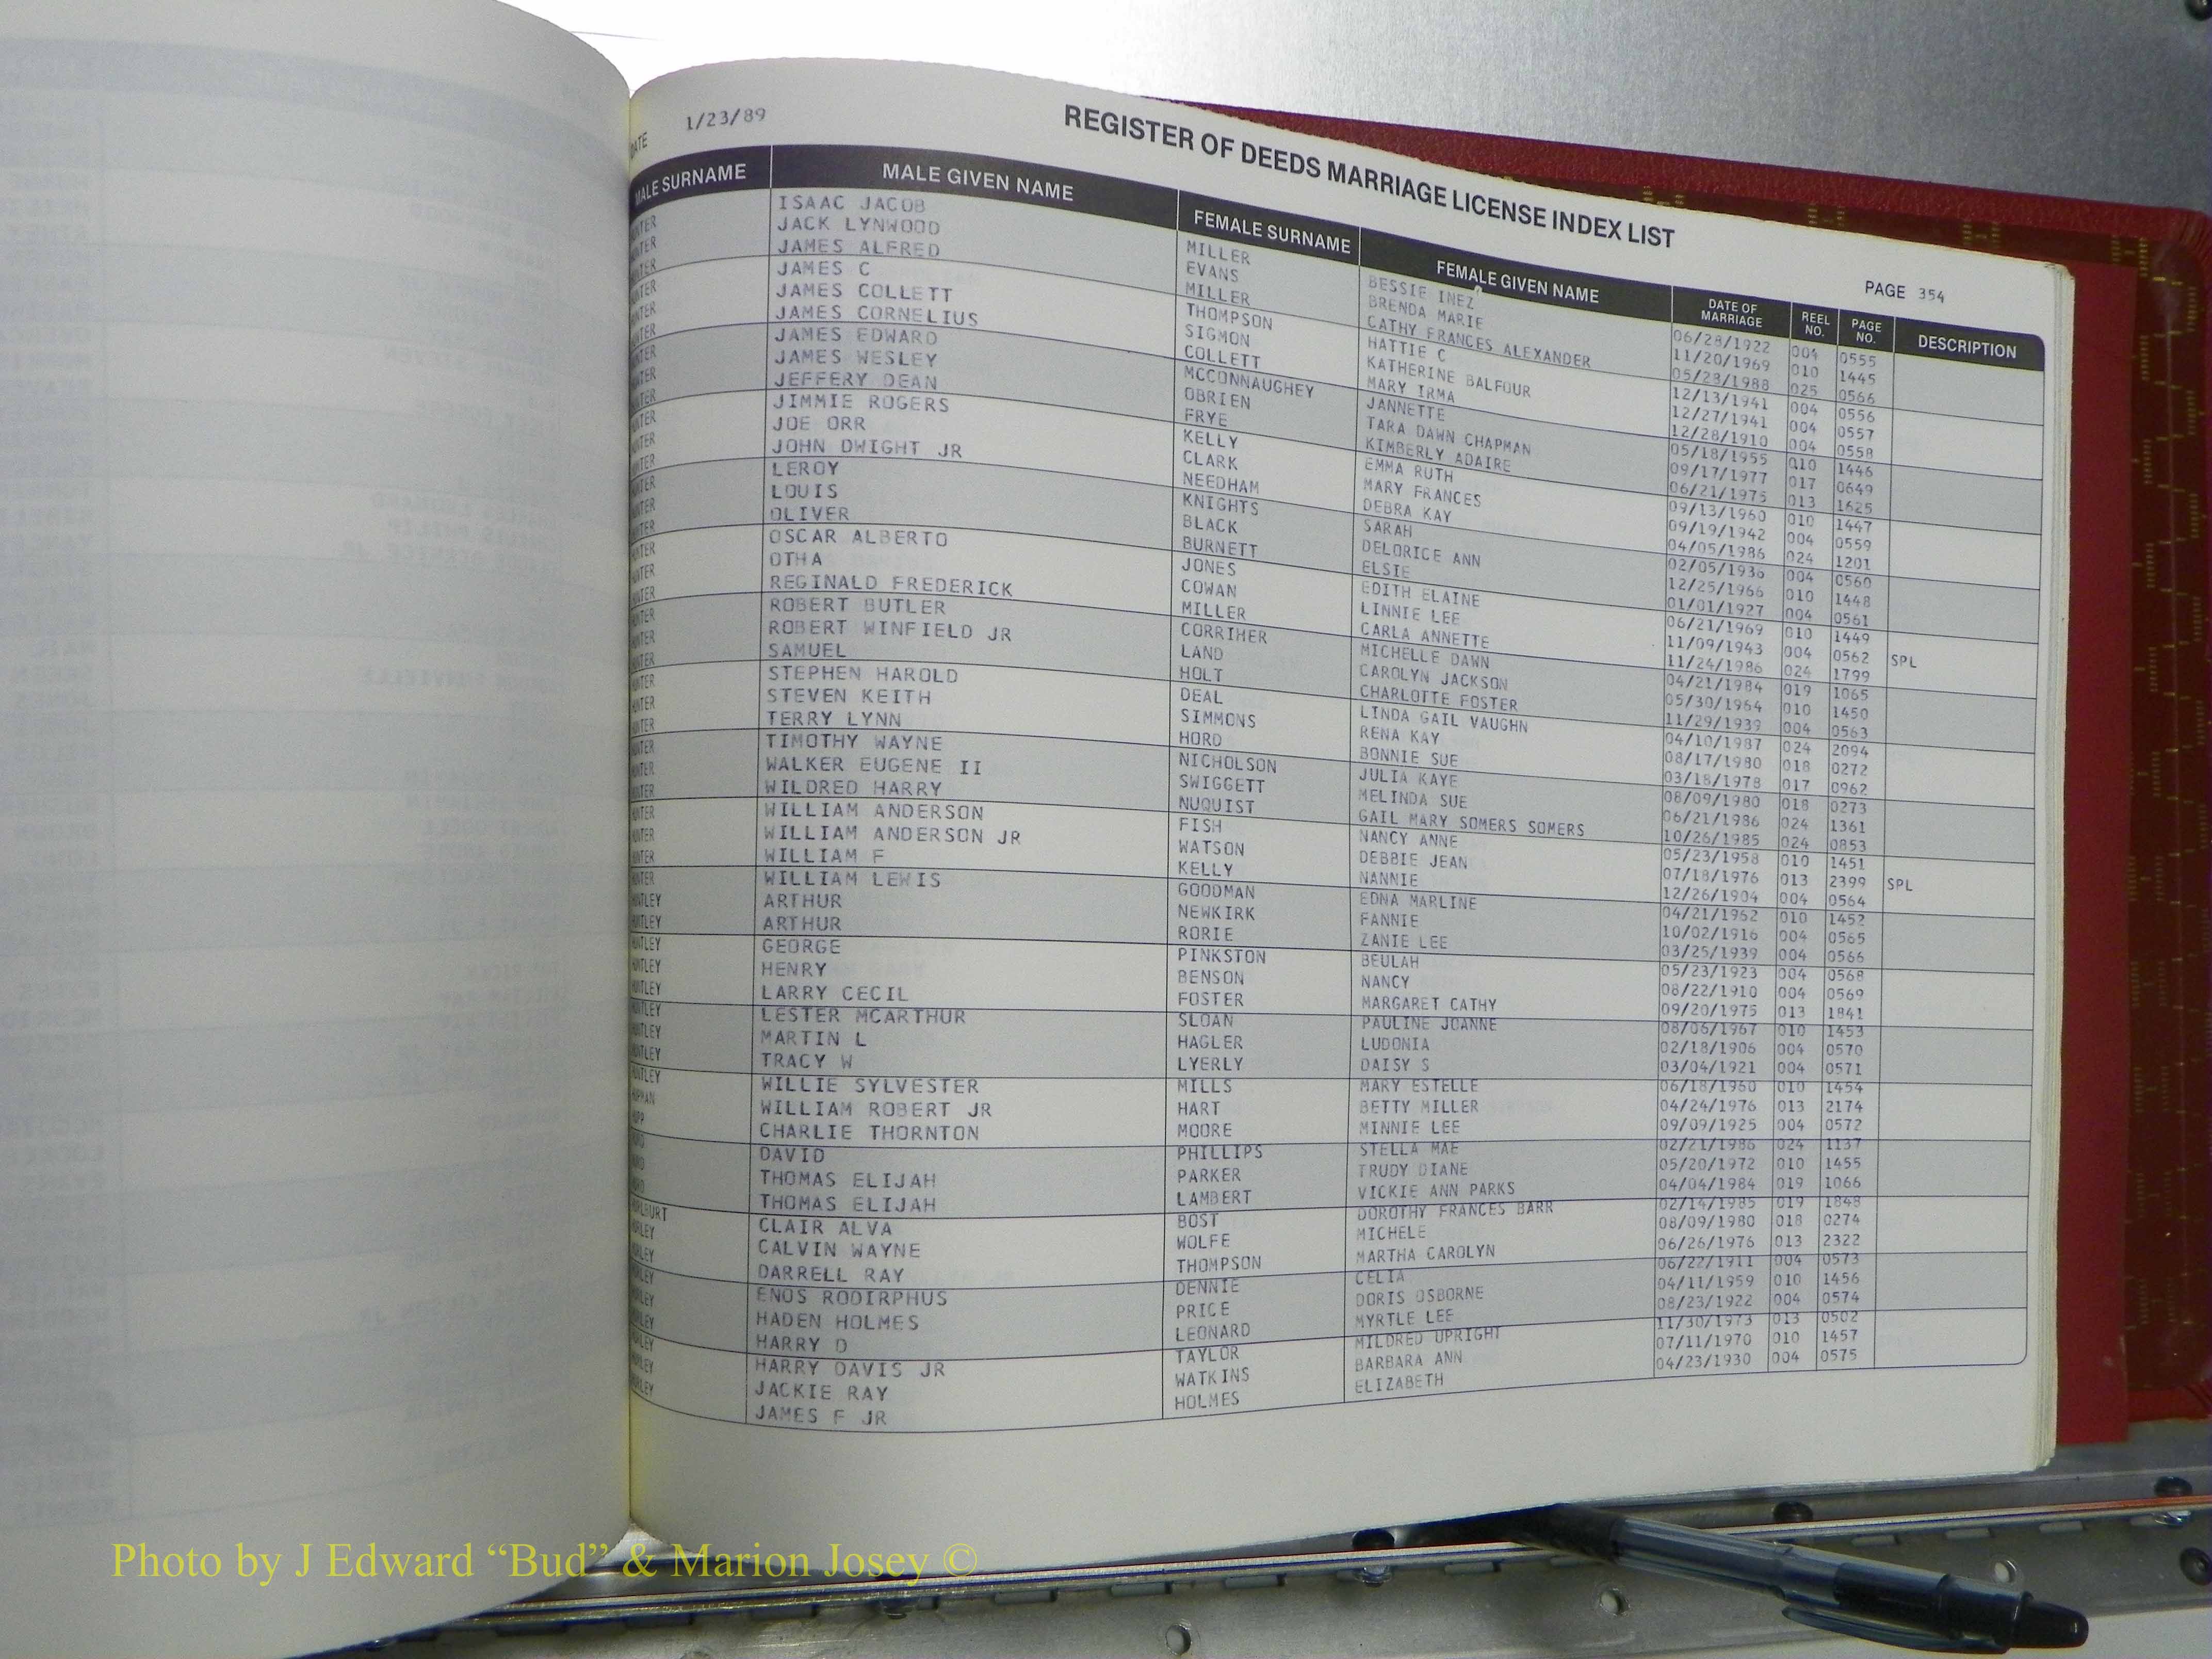 DATE 1/23/89
REGISTER OF DEEDS MARRIAGE LICENSE INDEX LIST
PAGE 354
MALE SURNAME MALE GIVEN NAME FEMALE SURNAME FEMALE GIVEN NAME DATE OF MARRIAGE REEL NO. PAGE NO. DESCRIPTION
HUNTER ISAAC JACOB MILLER BESSIE INEZ 06/28/1922 004 0555
HUNTER JACK LYNWOOD EVANS BRENDA MARIE 11/20/1969 010 1445
HUNTER JAMES ALFRED MILLER CATHY FRANCES ALEXANDER 05/28/1988 025 0566
HUNTER JAMES C THOMPSON HATTIE C 12/13/1941 004 0556
HUNTER JAMES COLLETT SIGMON KATHERINE BALFOUR 12/27/1941 004 0557
HUNTER JAMES CORNELIUS COLLETT MARY IRMA 12/28/1910 004 0558
HUNTER JAMES EDWARD MCCONNAUGHEY JANNETTE 05/18/1955 010 1446
HUNTER JAMES WESLEY OBRIEN TARA DAWN CHAPMAN 09/17/1977 017 0649
HUNTER JEFFERY DEAN FRYE KIMBERLY ADAIRE 06/21/1975 013 1625
HUNTER JIMMIE ROGERS KELLY EMMA RUTH 09/13/1960 010 1447
HUNTER JOE ORR CLARK MARY FRANCES 09/19/1942 004 0559
HUNTER JOHN DWIGHT JR NEEDHAM DEBRA KAY 04/05/1986 024 1201
HUNTER LEROY KNIGHTS SARAH 02/05/1936 004 0560
HUNTER LOUIS BLACK DELORICE ANN 12/25/1966 010 1448
HUNTER OLIVER BURNETT ELSIE 01/01/1927 004 0561
HUNTER OSCAR ALBERTO JONES EDITH ELAINE 06/21/1969 010 1449
HUNTER OTHA COWAN LINNIE LEE 11/09/1943 004 0562 SPL
HUNTER REGINALD FREDERICK MILLER CARLA ANNETTE 11/24/1986 024 1799
HUNTER ROBERT BUTLER CORRIHER MICHELLE DAWN 04/21/1984 019 1065
HUNTER ROBERT WINFIELD JR LAND CAROLYN JACKSON 05/30/1964 010 1450
HUNTER SAMUEL HOLT CHARLOTTE FOSTER 11/29/1939 004 0563
HUNTER STEPHEN HAROLD DEAL LINDA GAIL VAUGHN 04/10/1987 024 2094
HUNTER STEVEN KEITH SIMMONS RENA KAY 08/17/1980 018 0272
HUNTER TERRY LYNN HORD BONNIE SUE 03/18/1978 017 0962
HUNTER TIMOTHY WAYNE NICHOLSON JULIA KAYE 08/09/1980 018 0273
HUNTER WALKER EUGENE II SWIGGETT MELINDA SUE 06/21/1986 024 1361
HUNTER WILDRED HARRY NUQUIST GAIL MARY SOMERS SOMERS 10/26/1985 024 0853
HUNTER WILLIAM ANDERSON FISH NANCY ANNE 05/23/1958 010 1451
HUNTER WILLIAM ANDERSON JR WATSON DEBBIE JEAN 07/18/1976 013 2399 SPL
HUNTER WILLIAM F KELLY NANNIE 12/26/1904 004 0564
HUNTER WILLIAM LEWIS GOODMAN EDNA MARLINE 04/21/1962 010 1452
HUNTLEY ARTHUR NEWKIRK FANNIE 10/02/1916 004 0565
HUNTLEY ARTHUR RORIE ZANIE LEE 03/25/1939 004 0566
HUNTLEY GEORGE PINKSTON BEULAH 05/23/1923 004 0568
HUNTLEY HENRY BENSON NANCY 08/22/1910 004 0569
HUNTLEY LARRY CECIL FOSTER MARGARET CATHY 09/20/1975 013 1841
HUNTLEY LESTER MCARTHUR SLOAN PAULINE JOANNE 08/06/1967 010 1453
HUNTLEY MARTIN L HAGLER LUDONIA 02/18/1906 004 0570
HUNTLEY TRACY W LYERLY DAISY S 03/04/1921 004 0571
HUNTLEY WILLIE SYLVESTER MILLS MARY ESTELLE 06/18/1960 010 1454
WILLIAM ROBERT JR HART BETTY MILLER 04/24/1976 013 2174
HUPP CHARLIE THORNTON MOORE MINNIE LEE 09/09/1925 004 0572
HURD DAVID PHILLIPS STELLA MAE 02/21/1986 024 1137
HURD THOMAS ELIJAH PARKER TRUDY DIANE 05/20/1972 010 1455
HURD THOMAS ELIJAH LAMBERT VICKIE ANN PARKS 04/04/1984 019 1066
HURLBURT CLAIR ALVA BOST DOROTHY FRANCES BARR 02/14/1985 019 1848
HURLEY CALVIN WAYNE WOLFE MICHELE 08/09/1980 018 0274
HURLEY DARRELL RAY THOMPSON MARTHA CAROLYN 06/26/1976 013 2322
HURLEY ENOS RODIRPHUS DENNIE CELIA 06/22/1911 004 0573
HURLEY HADEN HOLMES PRICE DORIS OSBORNE 04/11/1959 010 1456
HURLEY HARRY D LEONARD MYRTLE LEE 08/23/1922 004 0574
HURLEY HARRY DAVIS JR TAYLOR MILDRED UPRIGHT 11/30/1973 013 0502
HURLEY JACKIE RAY WATKINS BARBARA ANN 07/11/1970 010 1457
HURLEY JAMES F JR HOLMES ELIZABETH 04/23/1930 004 0575
Photo by J Edward “Bud” & Marion Josey ©